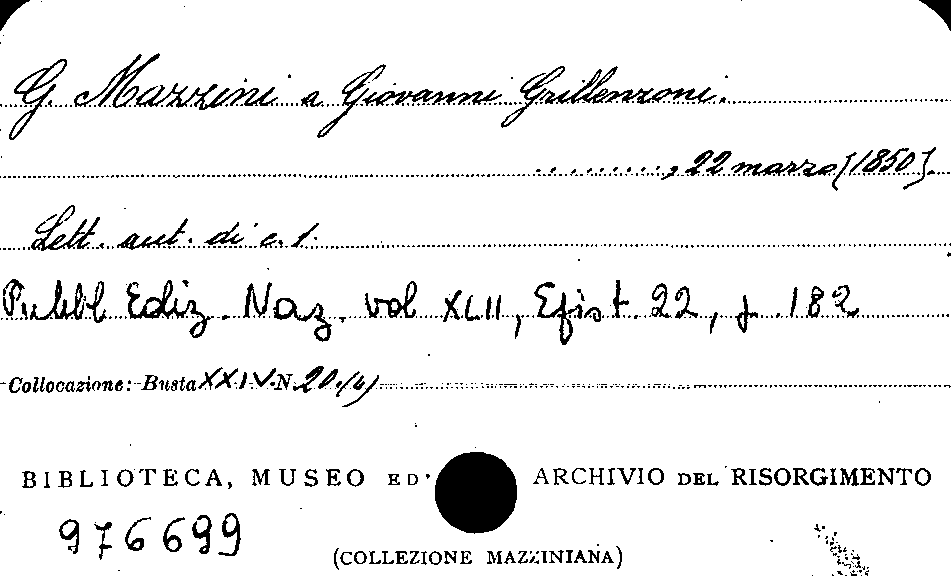 G. Mazzini a Giovanni Grillenzoni.
........., 22 marzo [1850].
Lett. aut. di c. 1.
Pubbl Ediz. Naz. vol XLII, Epist. 22, p. 182
Collocazione: Busta XXIV N. 20 (4)
BIBLIOTECA, MUSEO ED ARCHIVIO DEL RISORGIMENTO
976699
(COLLEZIONE MAZZINIANA)